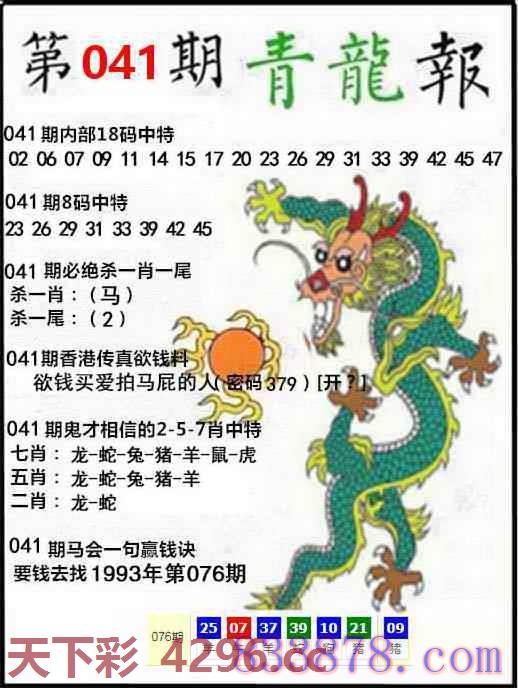 第041期 青龍報
041期内部18码中特
02 06 07 09 11 14 15 17 20 23 26 29 31 33 39 42 45 47
041期8码中特
23 26 29 31 33 39 42 45
041 期必绝杀一肖一尾
杀一肖：（马）
杀一尾：（2）
041期香港传真欲钱料
欲钱买爱拍马屁的人(密码379)[开？]
041期鬼才相信的2-5-7肖中特
七肖：龙-蛇-兔-猪-羊-鼠-虎
五肖：龙-蛇-兔-猪-羊
二肖：龙-蛇
041期马会一句赢钱诀
要钱去找1993年第076期
076期 25 07 37 39 10 21 09
羊 羊 狗 猪 猪
天下彩 4296.cc